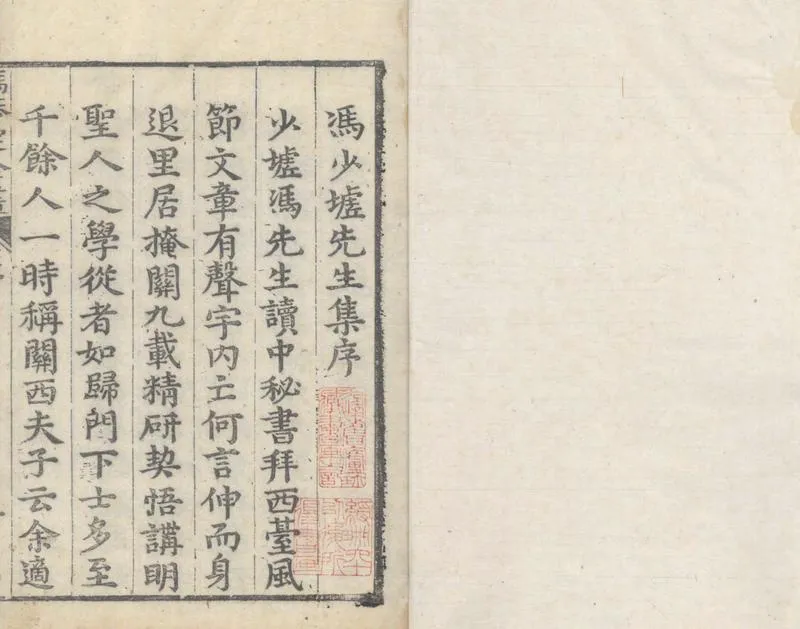 馮少墟先生集序
少墟馮先生讀中秘書拜西臺風
節文章有聲宇内亡何言伸而身
退里居掩關九載精研契悟講明
聖人之學從者如歸門下士多至
千餘人一時稱關西夫子云余適